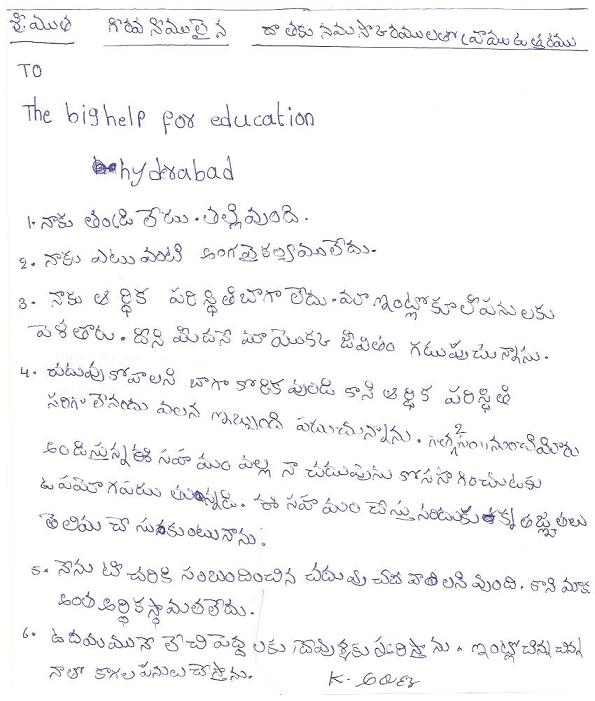 శ్రీయుత గౌరవనీయులైన దాతకు నమస్కారములతో వ్రాయు ఉత్తరము
TO
The bighelp for education
hyderabad
1. నాకు తండ్రి లేడు. తల్లి వుంది.
2. నాకు ఎటు వంటి అంగవైకల్యము లేదు.
3. నాకు ఆర్థిక పరిస్థితి బాగా లేదు. మా ఇంట్లో కూలీ పనులకు
వెళతారు. దాని మీదనే మా యొక్క జీవితం గడుపుచున్నాను.
4. చదువుకోవాలని బాగా కోరిక వుంది కాని ఆర్థిక పరిస్థితి
సరిగా లేనందు వలన ఇబ్బంది పడుచున్నాను. గత 2 సం.. నుంచి మీరు
అందిస్తున్న ఈ సహాయం వల్ల నా చదువును కొనసాగించుటకు
ఉపయోగపడు తున్నది. ఈ సహాయం చేస్తునందుకు కృతజ్ఞతలు
తెలియ చేసుకుంటునాను.
5. నేను టీచరికి సంబందించిన చదువు చదవాలని వుంది. కాని మాకు
అంత ఆర్థికస్థామత లేదు.
6. ఉదయమునే లేచి పెద్దలకు దేవుళ్ళకు స్మరిస్తాను. ఇంట్లో చిన్న చిన్న
నాతో కాగల పనులు చేస్తాను.
K.